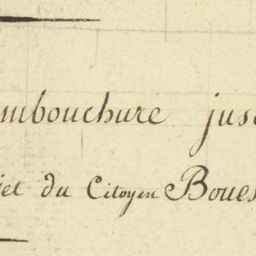 mbouchure jus
jet du Citoyen Boues